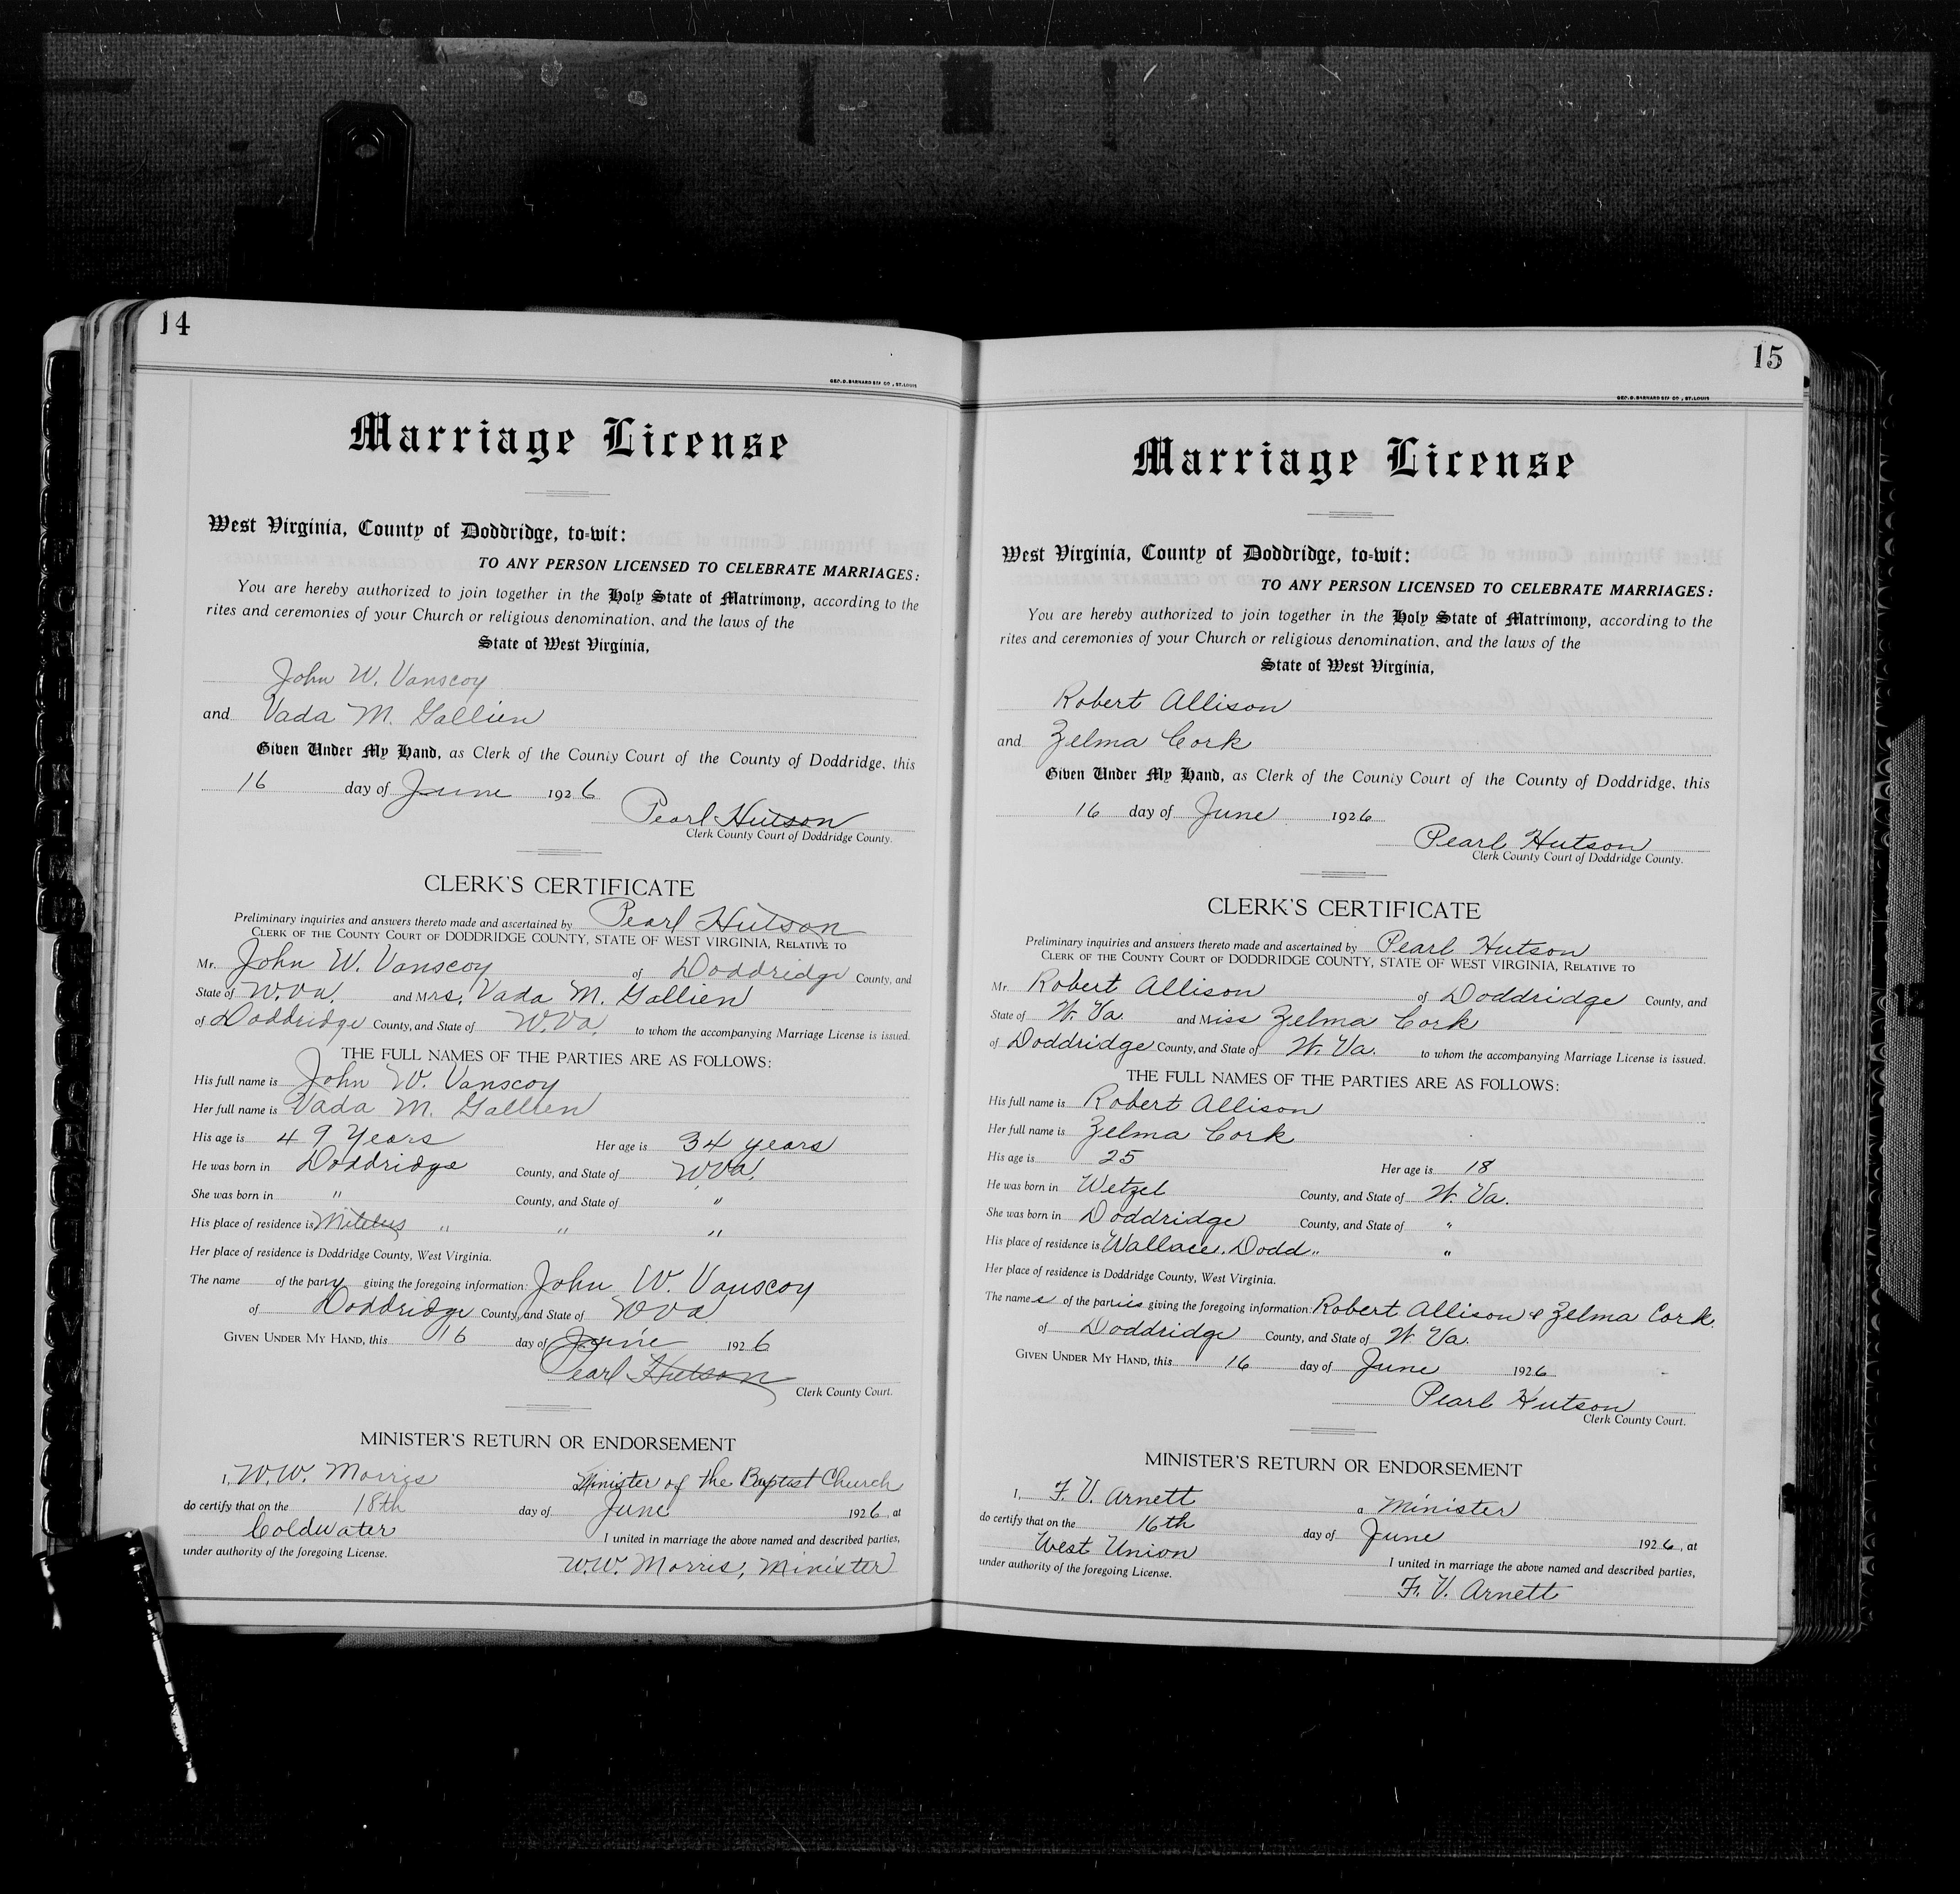 14
GEO. D. BARNARD STA. CO., ST. LOUIS
Marriage License
West Virginia, County of Doddridge, to-wit:
TO ANY PERSON LICENSED TO CELEBRATE MARRIAGES:
You are hereby authorized to join together in the Holy State of Matrimony, according to the
rites and ceremonies of your Church or religious denomination, and the laws of the
State of West Virginia,
John W. Vanscoy
and Vada M. Gallien
Given Under My Hand, as Clerk of the County Court of the County of Doddridge, this
16 day of June 1926
Pearl Hutson
Clerk County Court of Doddridge County.
CLERK'S CERTIFICATE
Preliminary inquiries and answers thereto made and ascertained by Pearl Hutson
CLERK OF THE COUNTY COURT OF DODDRIDGE COUNTY, STATE OF WEST VIRGINIA, RELATIVE TO
Mr. John W. Vanscoy of Doddridge County, and
State of W.Va. and Mrs. Vada M. Gallien
of Doddridge County, and State of W.Va. to whom the accompanying Marriage License is issued.
THE FULL NAMES OF THE PARTIES ARE AS FOLLOWS:
His full name is John W. Vanscoy
Her full name is Vada M. Gallien
His age is 49 Years Her age is 34 years
He was born in Doddridge County, and State of W.Va.
She was born in " County, and State of "
His place of residence is " " "
Her place of residence is Doddridge County, West Virginia.
The name of the party giving the foregoing information: John W. Vanscoy
of Doddridge County, and State of W Va
GIVEN UNDER MY HAND, this 16 day of June 1926
Pearl Hutson
Clerk County Court.
MINISTER'S RETURN OR ENDORSEMENT
I, W.W. Morris Minister of the Baptist Church
do certify that on the 18th day of June 1926, at
Coldwater I united in marriage the above named and described parties,
under authority of the foregoing License.
W.W. Morris, Minister
15
GEO. D. BARNARD STA. CO., ST. LOUIS
Marriage License
West Virginia, County of Doddridge, to-wit:
TO ANY PERSON LICENSED TO CELEBRATE MARRIAGES:
You are hereby authorized to join together in the Holy State of Matrimony, according to the
rites and ceremonies of your Church or religious denomination, and the laws of the
State of West Virginia,
Robert Allison
and Zelma Cork
Given Under My Hand, as Clerk of the County Court of the County of Doddridge, this
16 day of June 1926
Pearl Hutson
Clerk County Court of Doddridge County.
CLERK'S CERTIFICATE
Preliminary inquiries and answers thereto made and ascertained by Pearl Hutson
CLERK OF THE COUNTY COURT OF DODDRIDGE COUNTY, STATE OF WEST VIRGINIA, RELATIVE TO
Mr. Robert Allison of Doddridge County, and
State of W. Va. and Miss Zelma Cork
of Doddridge County, and State of W. Va. to whom the accompanying Marriage License is issued.
THE FULL NAMES OF THE PARTIES ARE AS FOLLOWS:
His full name is Robert Allison
Her full name is Zelma Cork
His age is 25 Her age is 18
He was born in Wetzel County, and State of W. Va.
She was born in Doddridge County, and State of "
His place of residence is Wallace. Dodd " "
Her place of residence is Doddridge County, West Virginia.
The names of the parties giving the foregoing information: Robert Allison & Zelma Cork.
of Doddridge County, and State of W. Va.
GIVEN UNDER MY HAND, this 16 day of June 1926
Pearl Hutson
Clerk County Court.
MINISTER'S RETURN OR ENDORSEMENT
I, F. V. Arnett a Minister
do certify that on the 16th day of June 1926, at
West Union I united in marriage the above named and described parties,
under authority of the foregoing License.
F. V. Arnett